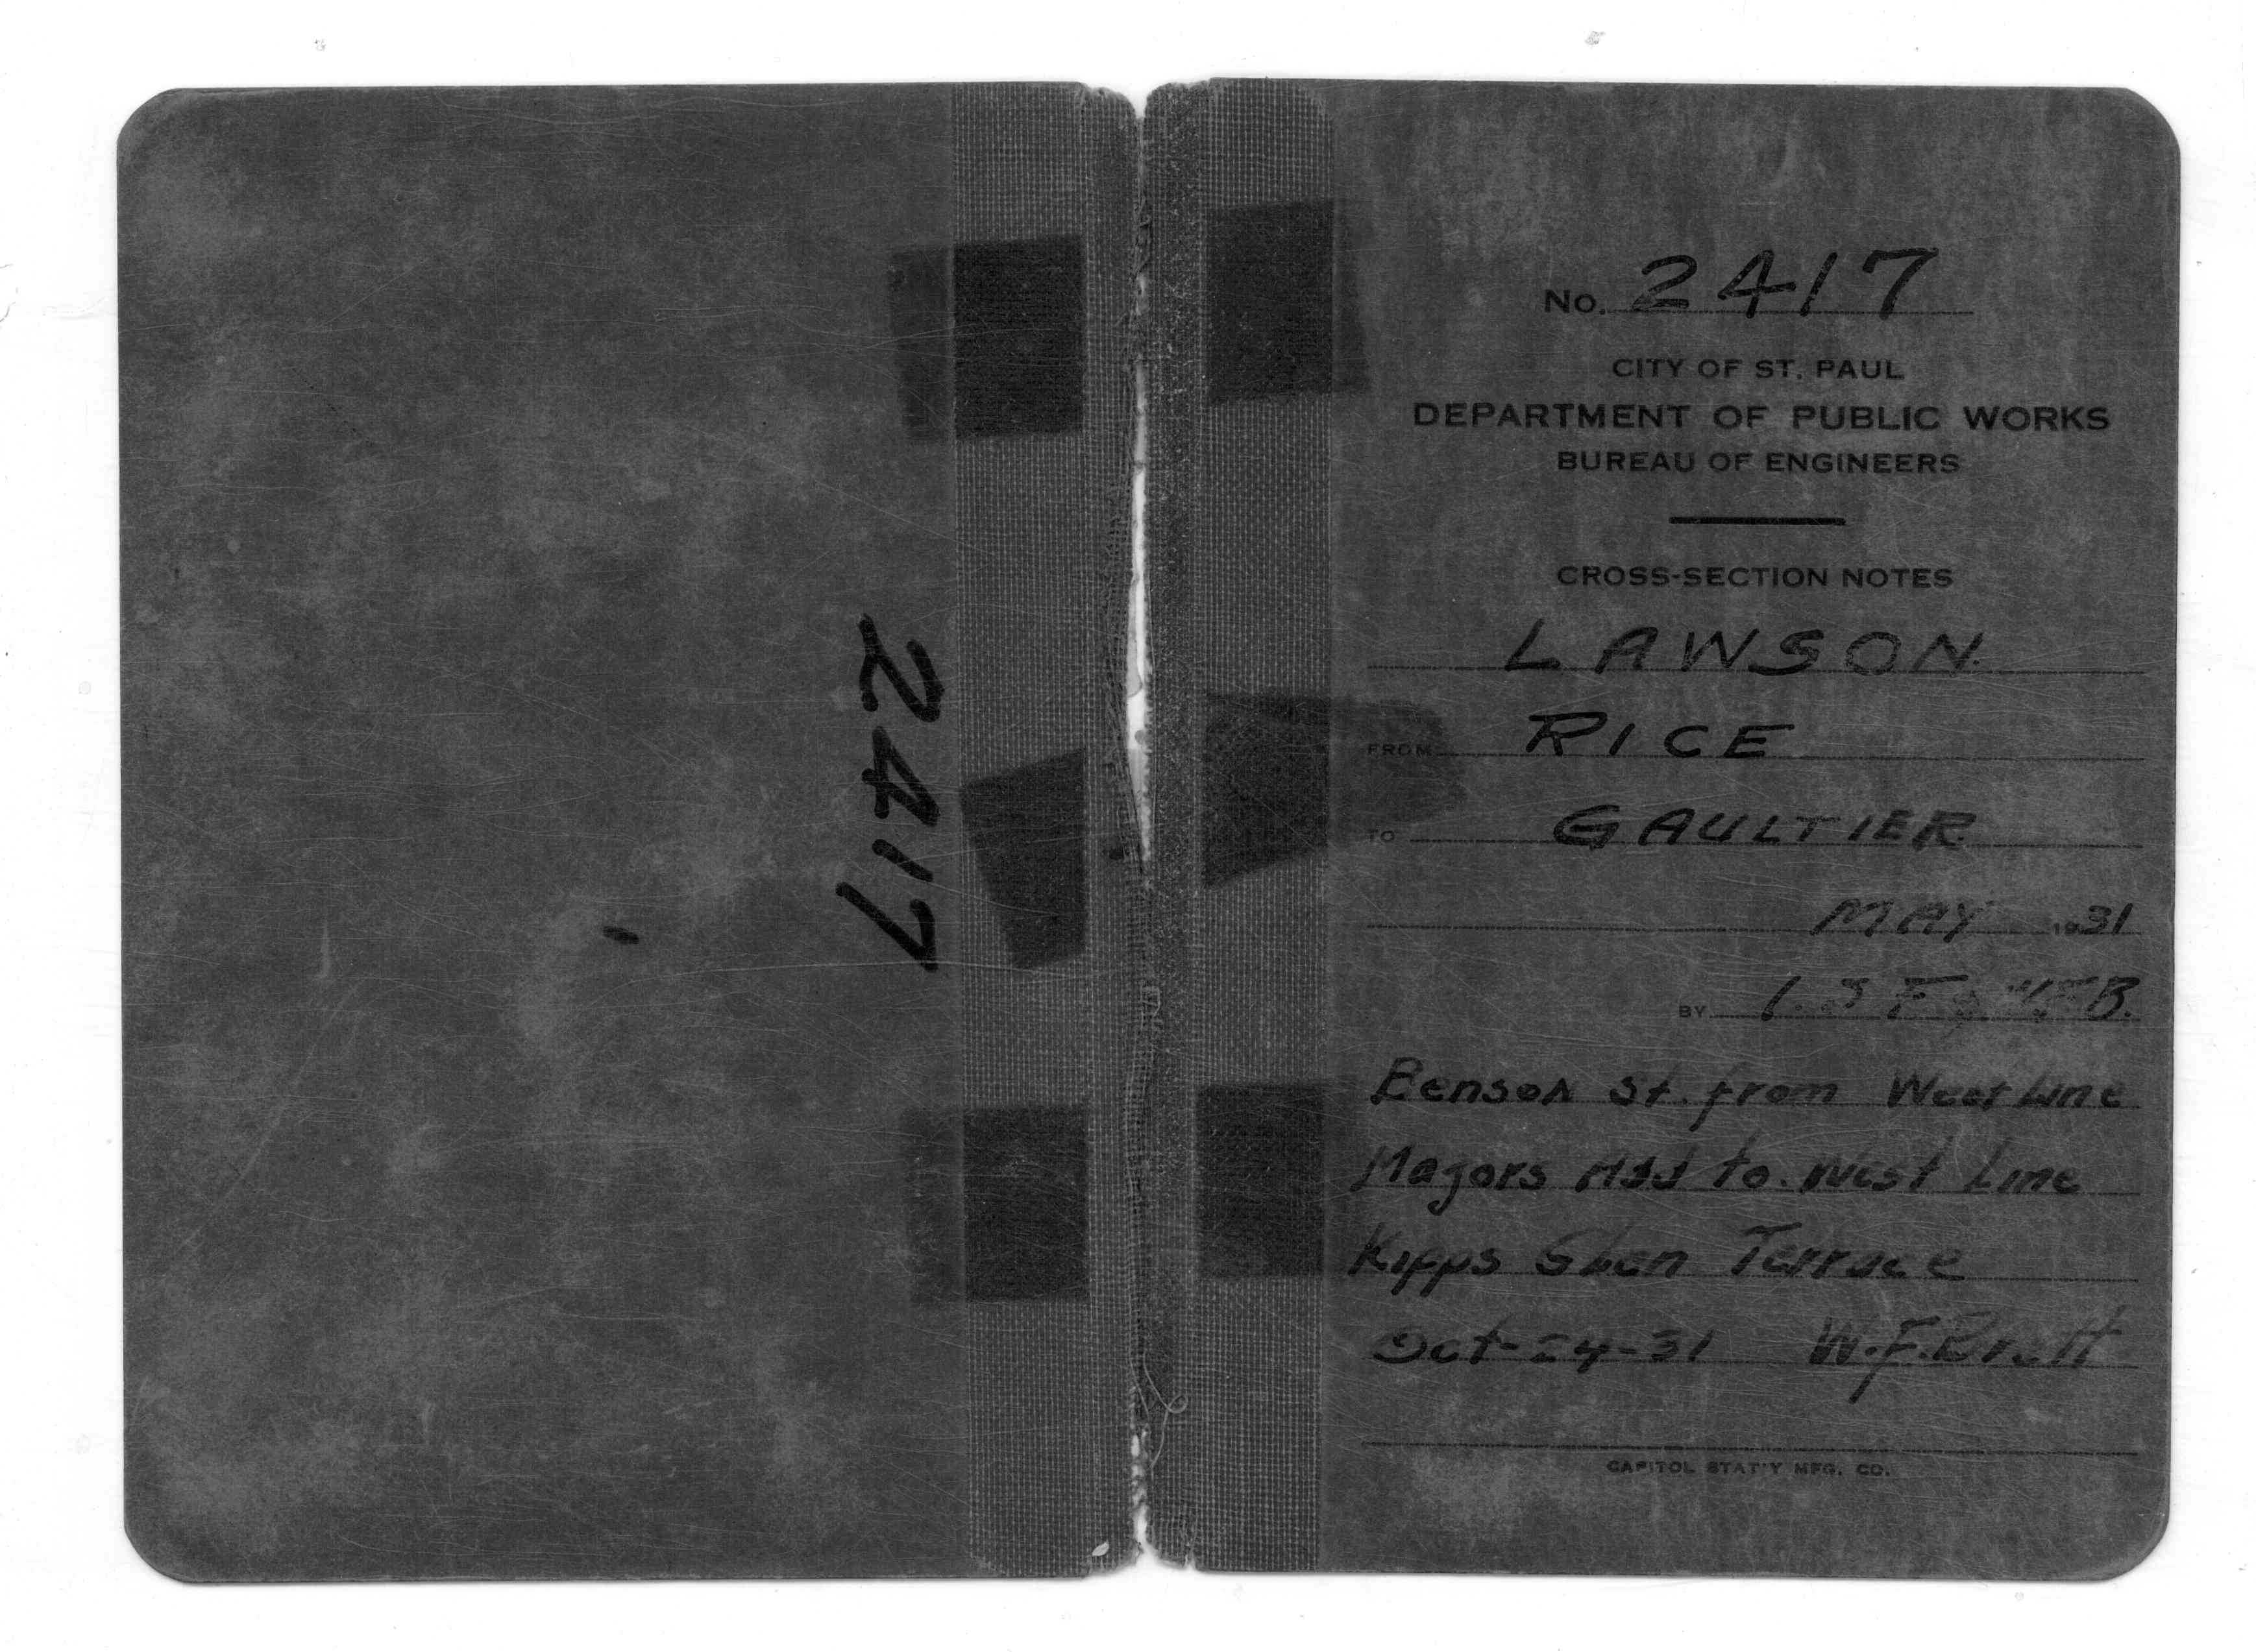 2417
No. 2417
CITY OF ST. PAUL
DEPARTMENT OF PUBLIC WORKS
BUREAU OF ENGINEERS
CROSS-SECTION NOTES
LAWSON
FROM RICE
TO GAULTIER
MAY 1931
BY
Benson St. from West Line
Majors Add to West Line
Kipps Glen Terrace
Oct-24-31 W.F.
CAPITOL STAT'Y MFG. CO.